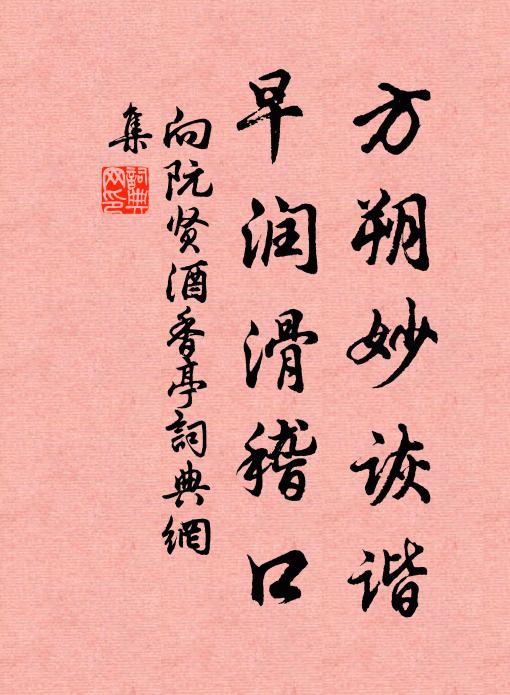 方朔妙诙谐
早润滑稽口
向阮贤酒香亭詞典網
集
詞典網印